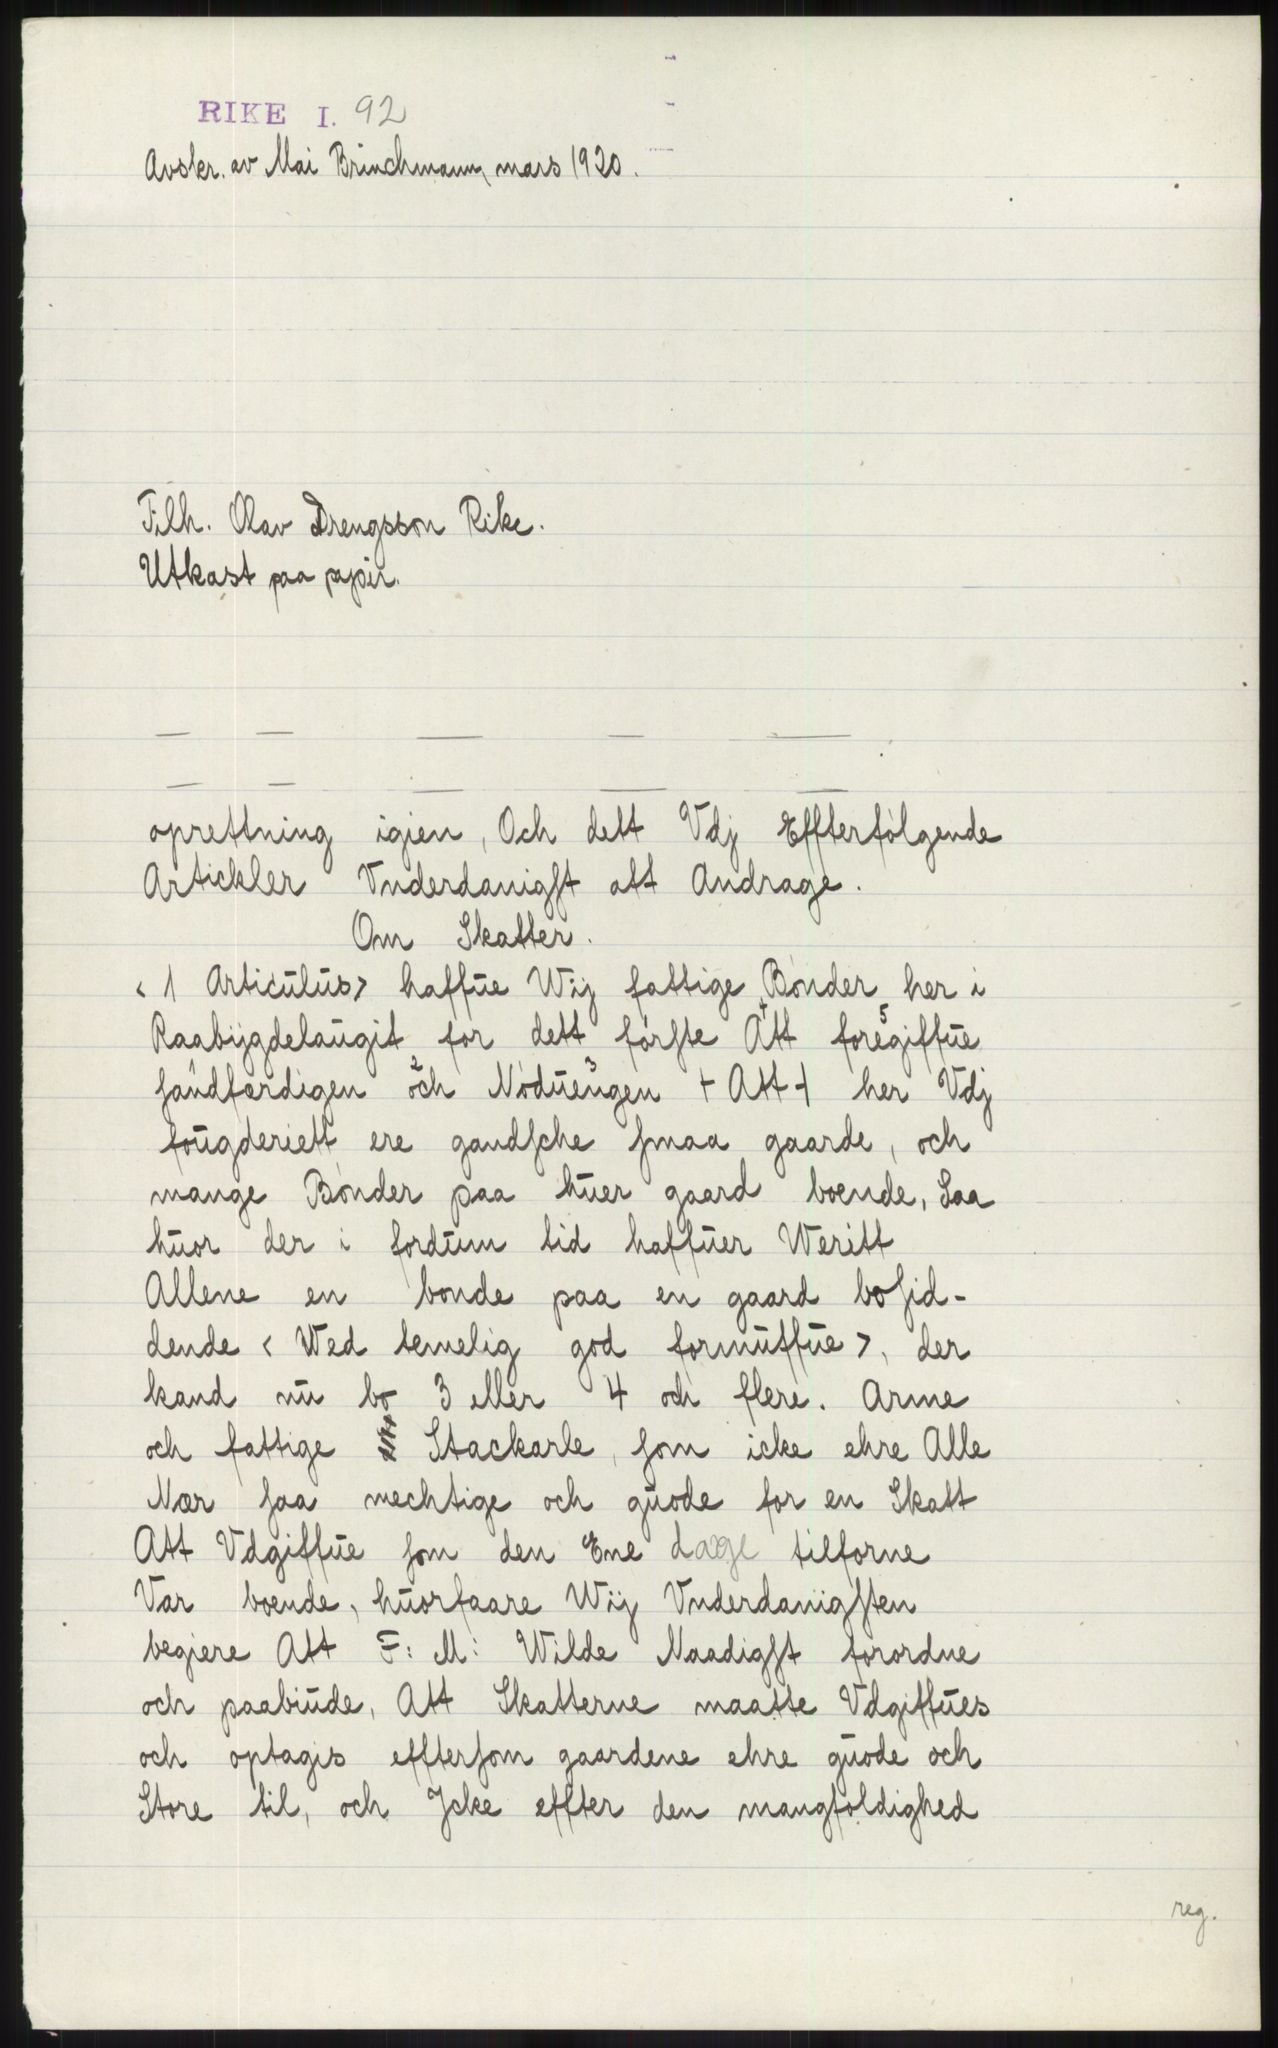 RIKE I. 92
Avskr. av Mai Brinchmann, mars 1920.
Tilh. Olav Drengsson Rike.
Utkast paa papir.
— — — — —
— — — — —
oprettning igien, Och dett Vdj Effterfølgende
Artickler Vnderdanigſt att Andrage.
Om Skatter.
< 1 Articulus> haffue Wij fattige Bønder her i
Raabÿgdelaugit for dett førſte Att foregiffue
ſandfærdigen och Nøduengen + Att + her Vdj
fougderiett ere gandſche ſmaa gaarde, och
mange Bønder paa huer gaard boende, Saa
huor der i fordum tid haffuer Weritt
Allene en bonde paa en gaard boſid-
dende < Wed temelig god formuffue>, der
kand nu bo 3 eller 4 och flere. Arme
och fattige Stackarle, ſom icke ehre Alle
Nær ſaa mechtige och guode for en Skatt
Att Vdgiffue ſom den Ene dage tilforne
Var boende, huorfaare Wij Vnderdanigſten
begiere Att F: M: Wilde Naadigſt forordne
och paabiude, Att Skatterne maatte Vdgiffues
och optagis effterſom gaardene ehre guode och
Store til, och Jcke effter den mangfoldighed
reg.